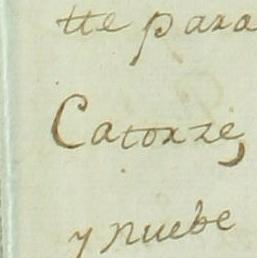 tte para
Catorze,
y nuebe